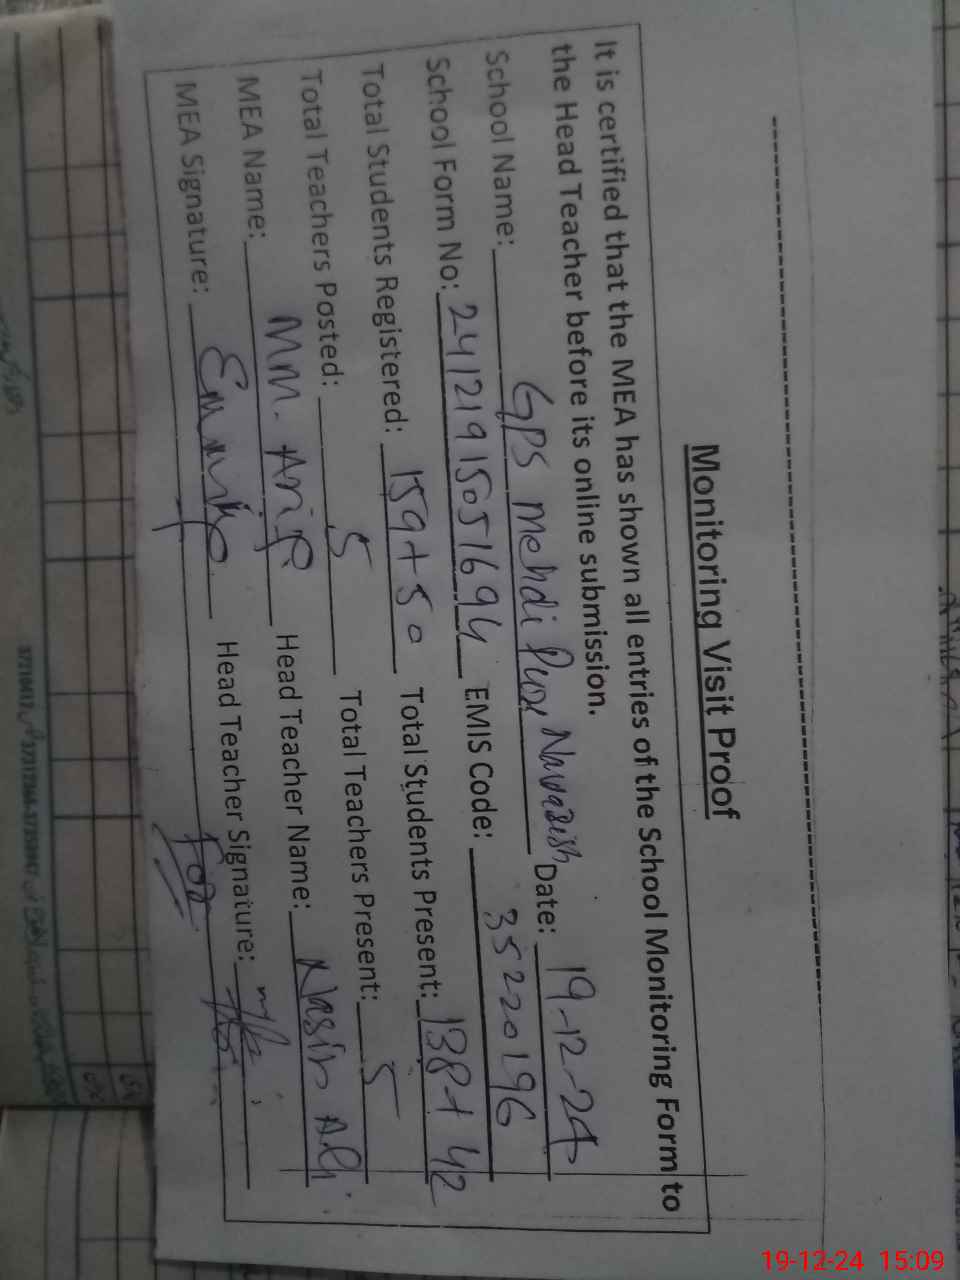 Monitoring Visit Proof
It is certified that the MEA has shown all entries of the School Monitoring Form to
the Head Teacher before its online submission.
School Name: GPS Mehdi Pura Nawazish Date: 19-12-24
School Form No: 24121915051694 EMIS Code: 35220196
Total Students Registered: 159+50 Total Students Present: 138+42
Total Teachers Posted: 5 Total Teachers Present: 5
MEA Name: Mm. Arif Head Teacher Name: Nasir Ali
MEA Signature: Head Teacher Signature:
For
19-12-24 15:09